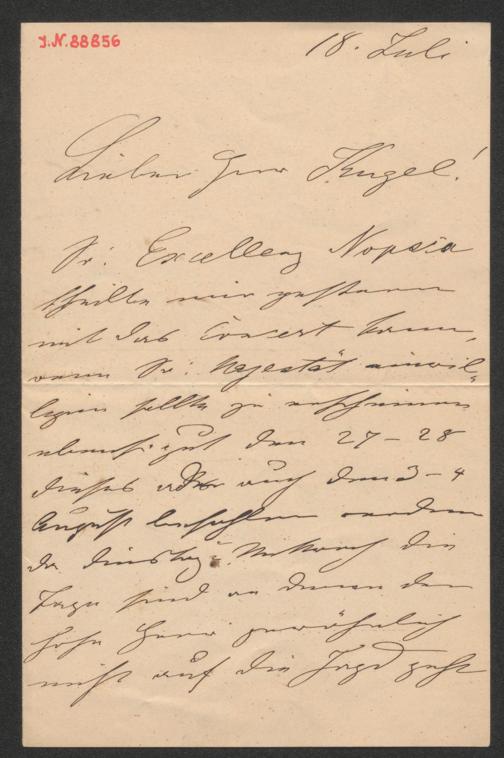 J.N. 88856
18. Juli
Lieber Herr Kugel!
Sr: Excellenz Nopcsa
theilte mir gestern
mit das Concert kann,
wenn Sr: Majestät einwil-
ligen sollte zu erscheinen
ebenso gut den 27–28
dieses oder auch den 3–4
August befohlen werden
da Dinstag u. Mittwoch die
Tage sind an denen der
hohe Herr gewöhnlich
nicht auf die Jagd geht